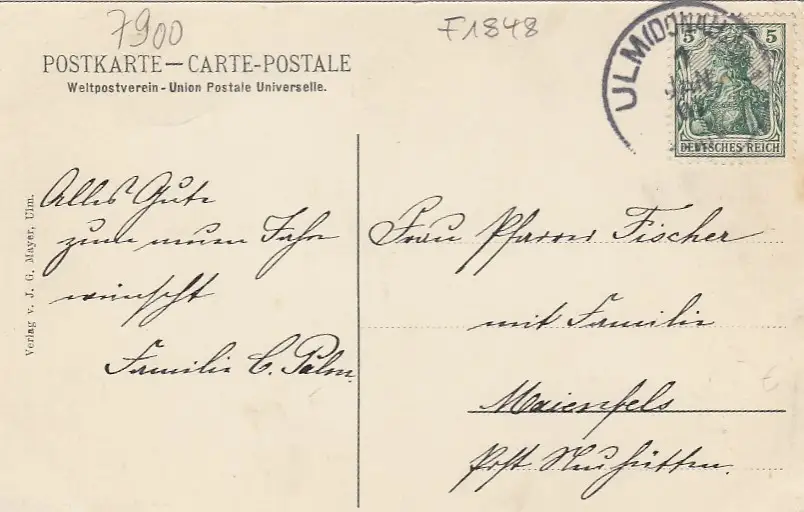 7900
F1848
POSTKARTE — CARTE-POSTALE
Weltpostverein - Union Postale Universelle.
ULM (DONAU)
JAN
5 5
DEUTSCHES REICH
Verlag v. J. G. Mayer, Ulm.
Alles Gute
zum neuen Jahr
wünscht
Familie C. Palm.
Frau Pfarrer Fischer
mit Familie
Maienfels
Post Neuhütten.